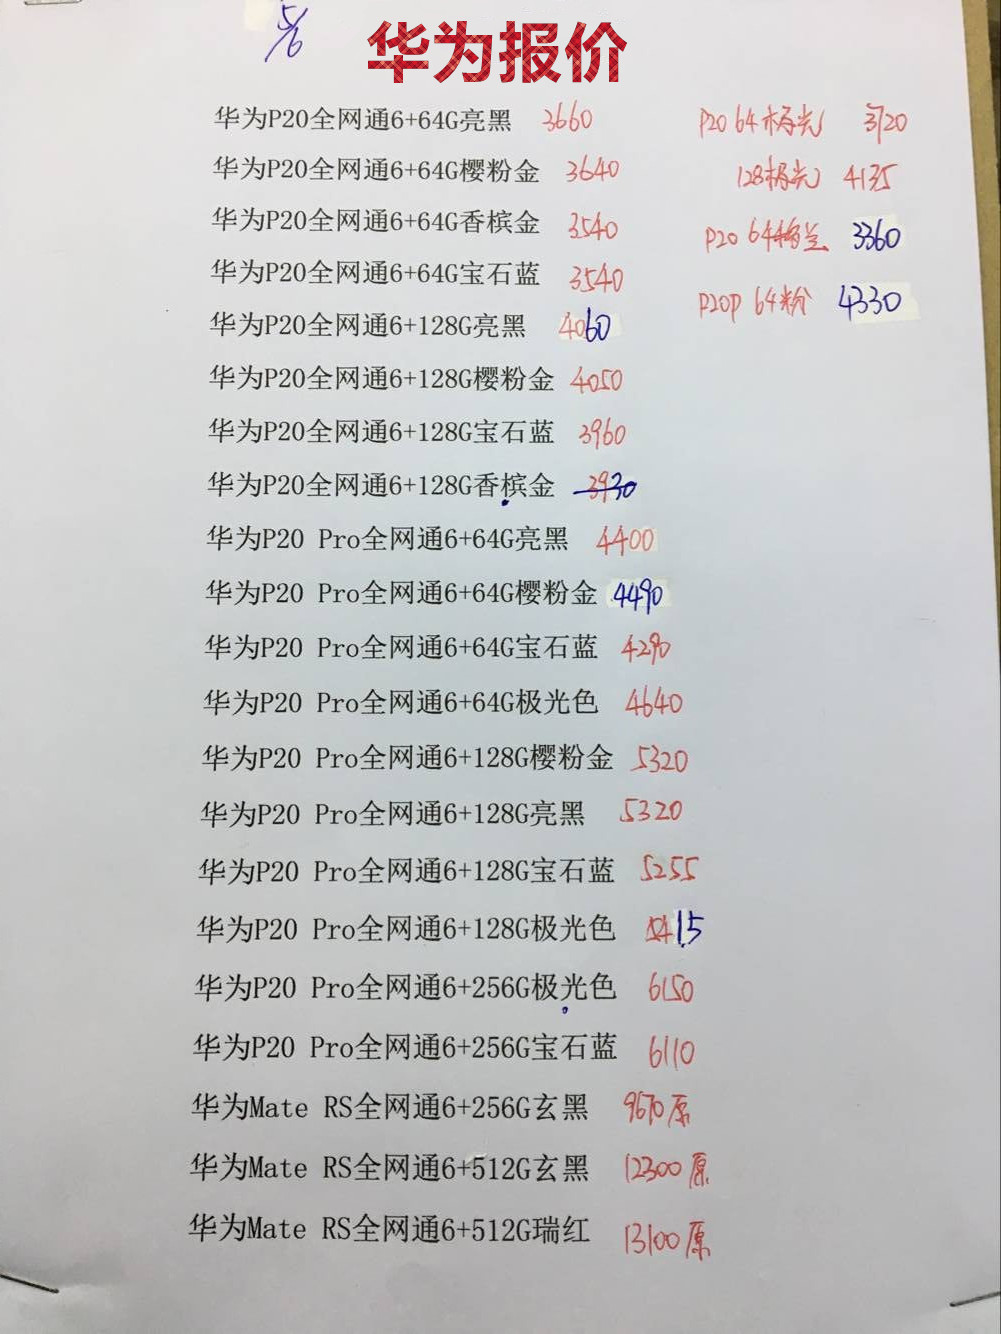 5/6
华为报价
华为P20全网通6+64G亮黑 3660
华为P20全网通6+64G樱粉金 3640
华为P20全网通6+64G香槟金 3540
华为P20全网通6+64G宝石蓝 3540
华为P20全网通6+128G亮黑 4060
华为P20全网通6+128G樱粉金 4050
华为P20全网通6+128G宝石蓝 3960
华为P20全网通6+128G香槟金 3930
华为P20 Pro全网通6+64G亮黑 4400
华为P20 Pro全网通6+64G樱粉金 4490
华为P20 Pro全网通6+64G宝石蓝 4290
华为P20 Pro全网通6+64G极光色 4640
华为P20 Pro全网通6+128G樱粉金 5320
华为P20 Pro全网通6+128G亮黑 5320
华为P20 Pro全网通6+128G宝石蓝 5255
华为P20 Pro全网通6+128G极光色 5415
华为P20 Pro全网通6+256G极光色 6150
华为P20 Pro全网通6+256G宝石蓝 6110
华为Mate RS全网通6+256G玄黑 9670原
华为Mate RS全网通6+512G玄黑 12300原
华为Mate RS全网通6+512G瑞红 13100原
P20 64极光 3720
128极光 4135
P20 64 3360
P20P 64粉 4330